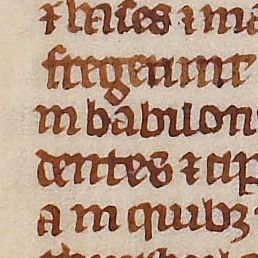 ⁊ bases ⁊ ma
fregerunt
in babilon
dentes ⁊ cip
a in quibꝫ